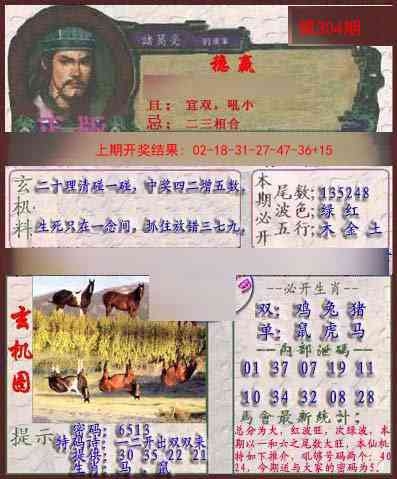 第304期
诸葛亮
稳赢
宜双,吼小
二三相合
上期开奖结果: 02-18-31-27-47-36+15
玄机料
二十理清碰一碰,中奖四二增五数,
生死只在一念间,抓住放错三七九,
本期必开
尾数:135248
波色:绿 红
五行:木 金 土
玄机图
--必开生肖--
双: 鸡 兔 猪
单: 鼠 虎 马
内部泄码
01 37 07 19 11
10 34 32 08 28
馬會最新統計:
总分为大,红波旺,次绿波,本
期以一和六之尾数大旺,本仙机
特如下推介,吼够号码两个: 40
24,今期运与大家的密码为5.
提示
密码: 6513
特码诗: 一二开出双双来
提供: 30 35 22 21
生肖: 马 鼠